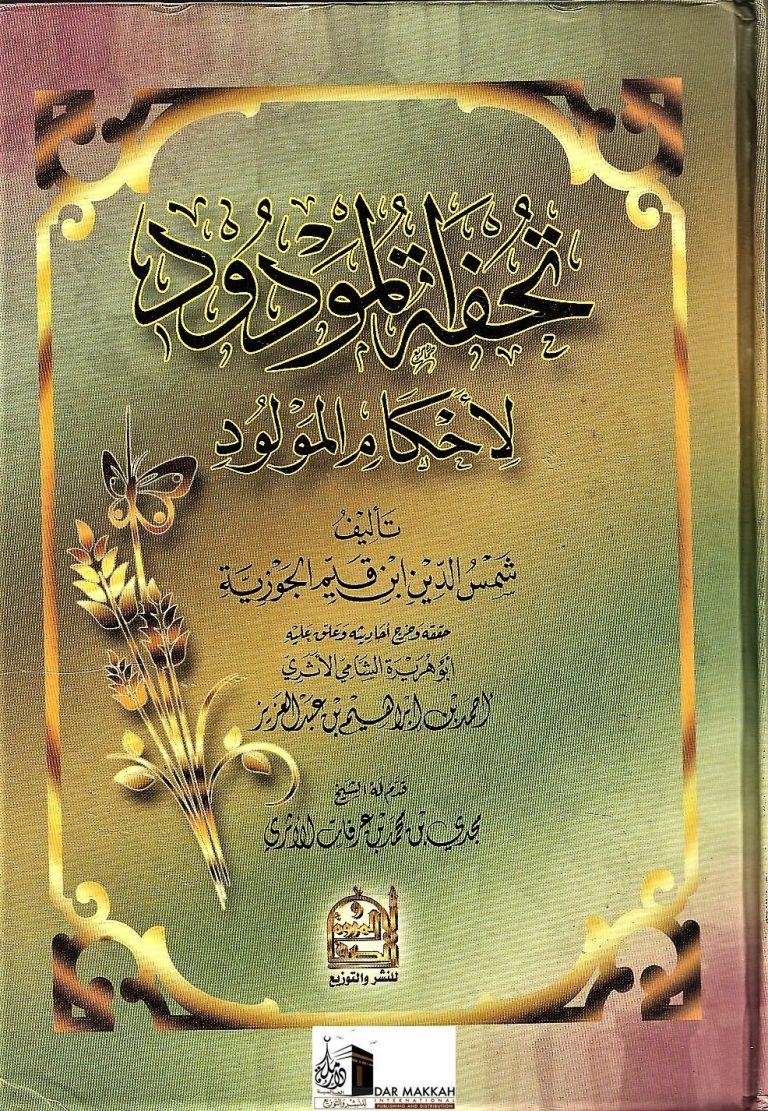 تُحْفَةُ المَوْدُودِ
لِأَحْكَامِ المَوْلُودِ
تَأليفُ
شَمْسُ الدِّيْنِ ابْنِ قَيِّمِ الجَوْزِيَّةِ
حققه وخرج أحاديثه وعلق عليه
أبو هريرة الشامي الأثري
أحمد بن إبراهيم بن عبد العزيز
قدم له الشيخ
مجدي بن محمد بن عرفات الأثري
للنشر والتوزيع
دار مكة
العالمية
للنشر والتوزيع
DAR MAKKAH
INTERNATIONAL
PUBLISHING AND DISTRIBUTION